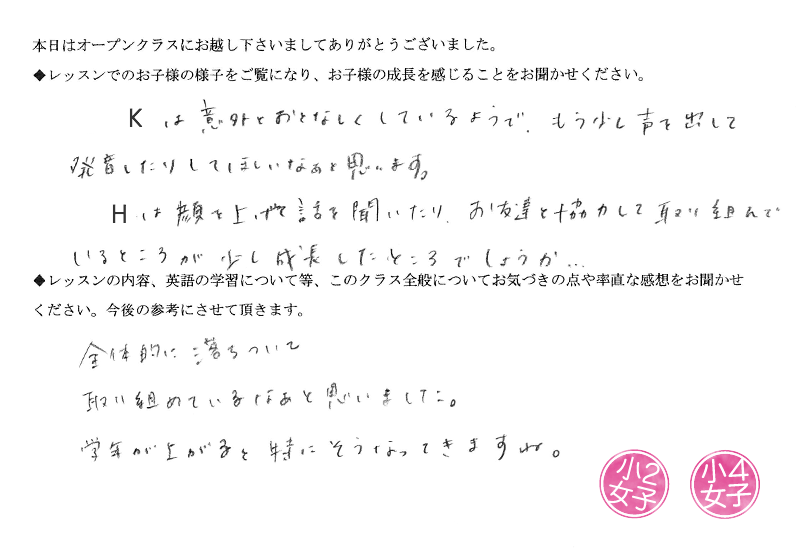 本日はオープンクラスにお越し下さいましてありがとうございました。
◆レッスンでのお子様の様子をご覧になり、お子様の成長を感じることをお聞かせください。
K は意外とおとなしくしているようで、もう少し声を出して
発音したりしてほしいなぁと思います。
H は顔を上げて話を聞いたり、お友達と協力して取り組んで
いるところが少し成長したところでしょうか…
◆レッスンの内容、英語の学習について等、このクラス全般についてお気づきの点や率直な感想をお聞かせ
ください。今後の参考にさせて頂きます。
全体的に落ちついて
取り組めているなぁと思いました。
学年が上がると特にそうなってきますね。
小2
女子
小4
女子